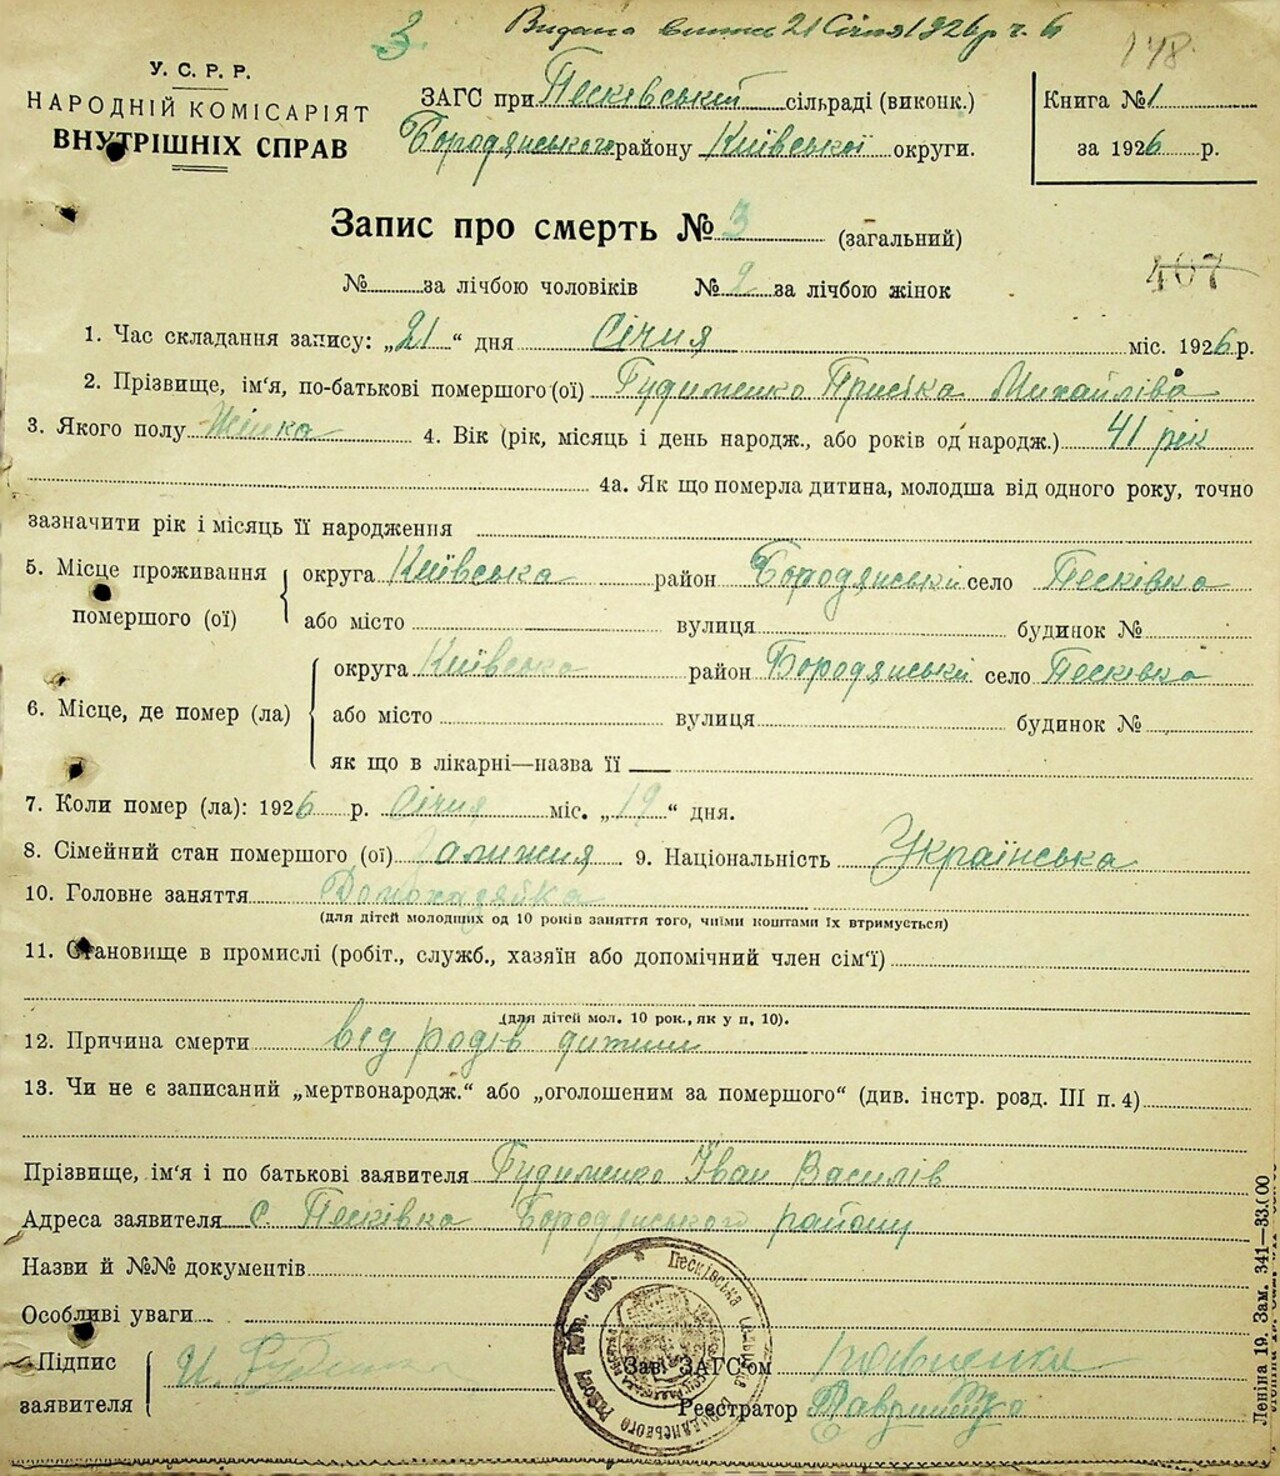 3.
Видано витяг 21 Січня 1926 р ч. 6
148.
У. С. Р. Р.
НАРОДНІЙ КОМІСАРІЯТ
ВНУТРІШНІХ СПРАВ
ЗАГС при Песківській сільраді (виконк.)
Бородянського району Київської округи.
Книга № 1
за 1926 р.
Запис про смерть № 3 (загальний)
407
№ за лічбою чоловіків № 2 за лічбою жінок
1. Час складання запису: „21“ дня Січня міс. 1926 р.
2. Прізвище, ім'я, по-батькові помершого (ої) Гудименко Приська Михайліва
3. Якого полу Жінка 4. Вік (рік, місяць і день народж., або років од народж.) 41 рік
4а. Як що померла дитина, молодша від одного року, точно
зазначити рік і місяць її народження
5. Місце проживання помершого (ої) округа Київська район Бородянській село Песківка
або місто вулиця будинок №
6. Місце, де помер (ла) округа Київська район Бородянській село Песківка
або місто вулиця будинок №
як що в лікарні—назва її
7. Коли помер (ла): 1926 р. Січня міс. „19“ дня.
8. Сімейний стан помершого (ої) Замижня 9. Національність Українська
10. Головне заняття Домохазяйка
(для дітей молодших од 10 років заняття того, чиїми коштами їх втримується)
11. Становище в промислі (робіт., служб., хазяїн або допомічний член сім'ї)
(для дітей мол. 10 рок., як у п. 10).
12. Причина смерти від родів дитини
13. Чи не є записаний „мертвонародж.“ або „оголошеним за помершого“ (див. інстр. розд. III п. 4)
Прізвище, ім'я і по батькові заявителя Гудименко Іван Василів
Адреса заявителя с. Песківка Бородянського району
Назви й №№ документів
Особливі уваги
Підпис заявителя И. Гудименко
Зав. ЗАГС'ом
Реєстратор
Песківська сільська Рада Бородянського Району
Леніна 19. Зам. 341—33.000